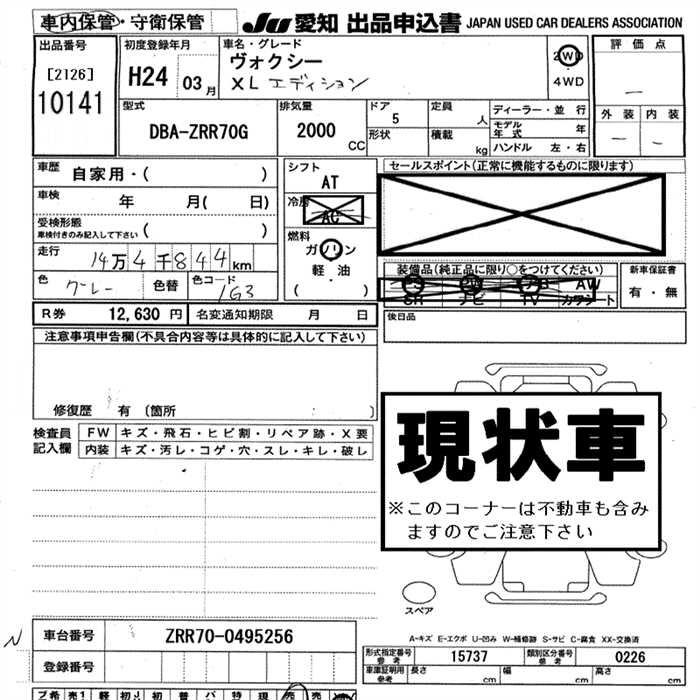 車内保管・守衛保管
JU 愛知 出品申込書 JAPAN USED CAR DEALERS ASSOCIATION
出品番号
[2126]
10141
初度登録年月
H24 03月
車名・グレード
ヴォクシー
XL エディション
2WD
・
4WD
評価点
—
外装 内装
— —
型式
DBA-ZRR70G
排気量
2000
CC
ドア
5
定員
人
形状
積載
kg
ディーラー・並行
モデル
年式 年
ハンドル 左・右
車歴 自家用・( )
車検 年 月( 日)
受検形態
車検付きのみ記入して下さい ( )
走行 14万4千844km
色 グレー 色替 色コード 1G3
シフト
AT
冷房
AC
燃料
ガソリン
軽・油
( )
セールスポイント(正常に機能するものに限ります)
装備品(純正品に限り○をつけてください)
PS PW AB AW
SR ナビ TV カワシート
新車保証書
有・無
後日品
R券 12,630 円 名変通知期限 月 日
注意事項申告欄(不具合内容等は具体的に記入して下さい)
修復歴 有 〔箇所 〕
検査員
記入欄
FW キズ・飛石・ヒビ割・リペア跡・X要
内装 キズ・汚レ・コゲ・穴・スレ・キレ・破レ
現状車
※このコーナーは不動車も含み
ますのでご注意下さい
スペア
N
車台番号 ZRR70-0495256
登録番号
A-キズ E-エクボ U-凹み W-補修跡 S-サビ C-腐食 XX-交換済
形式指定番号
参考
15737
類別区分番号
参考
0226
車庫証明用
参考
長さ cm 幅 cm 高さ cm